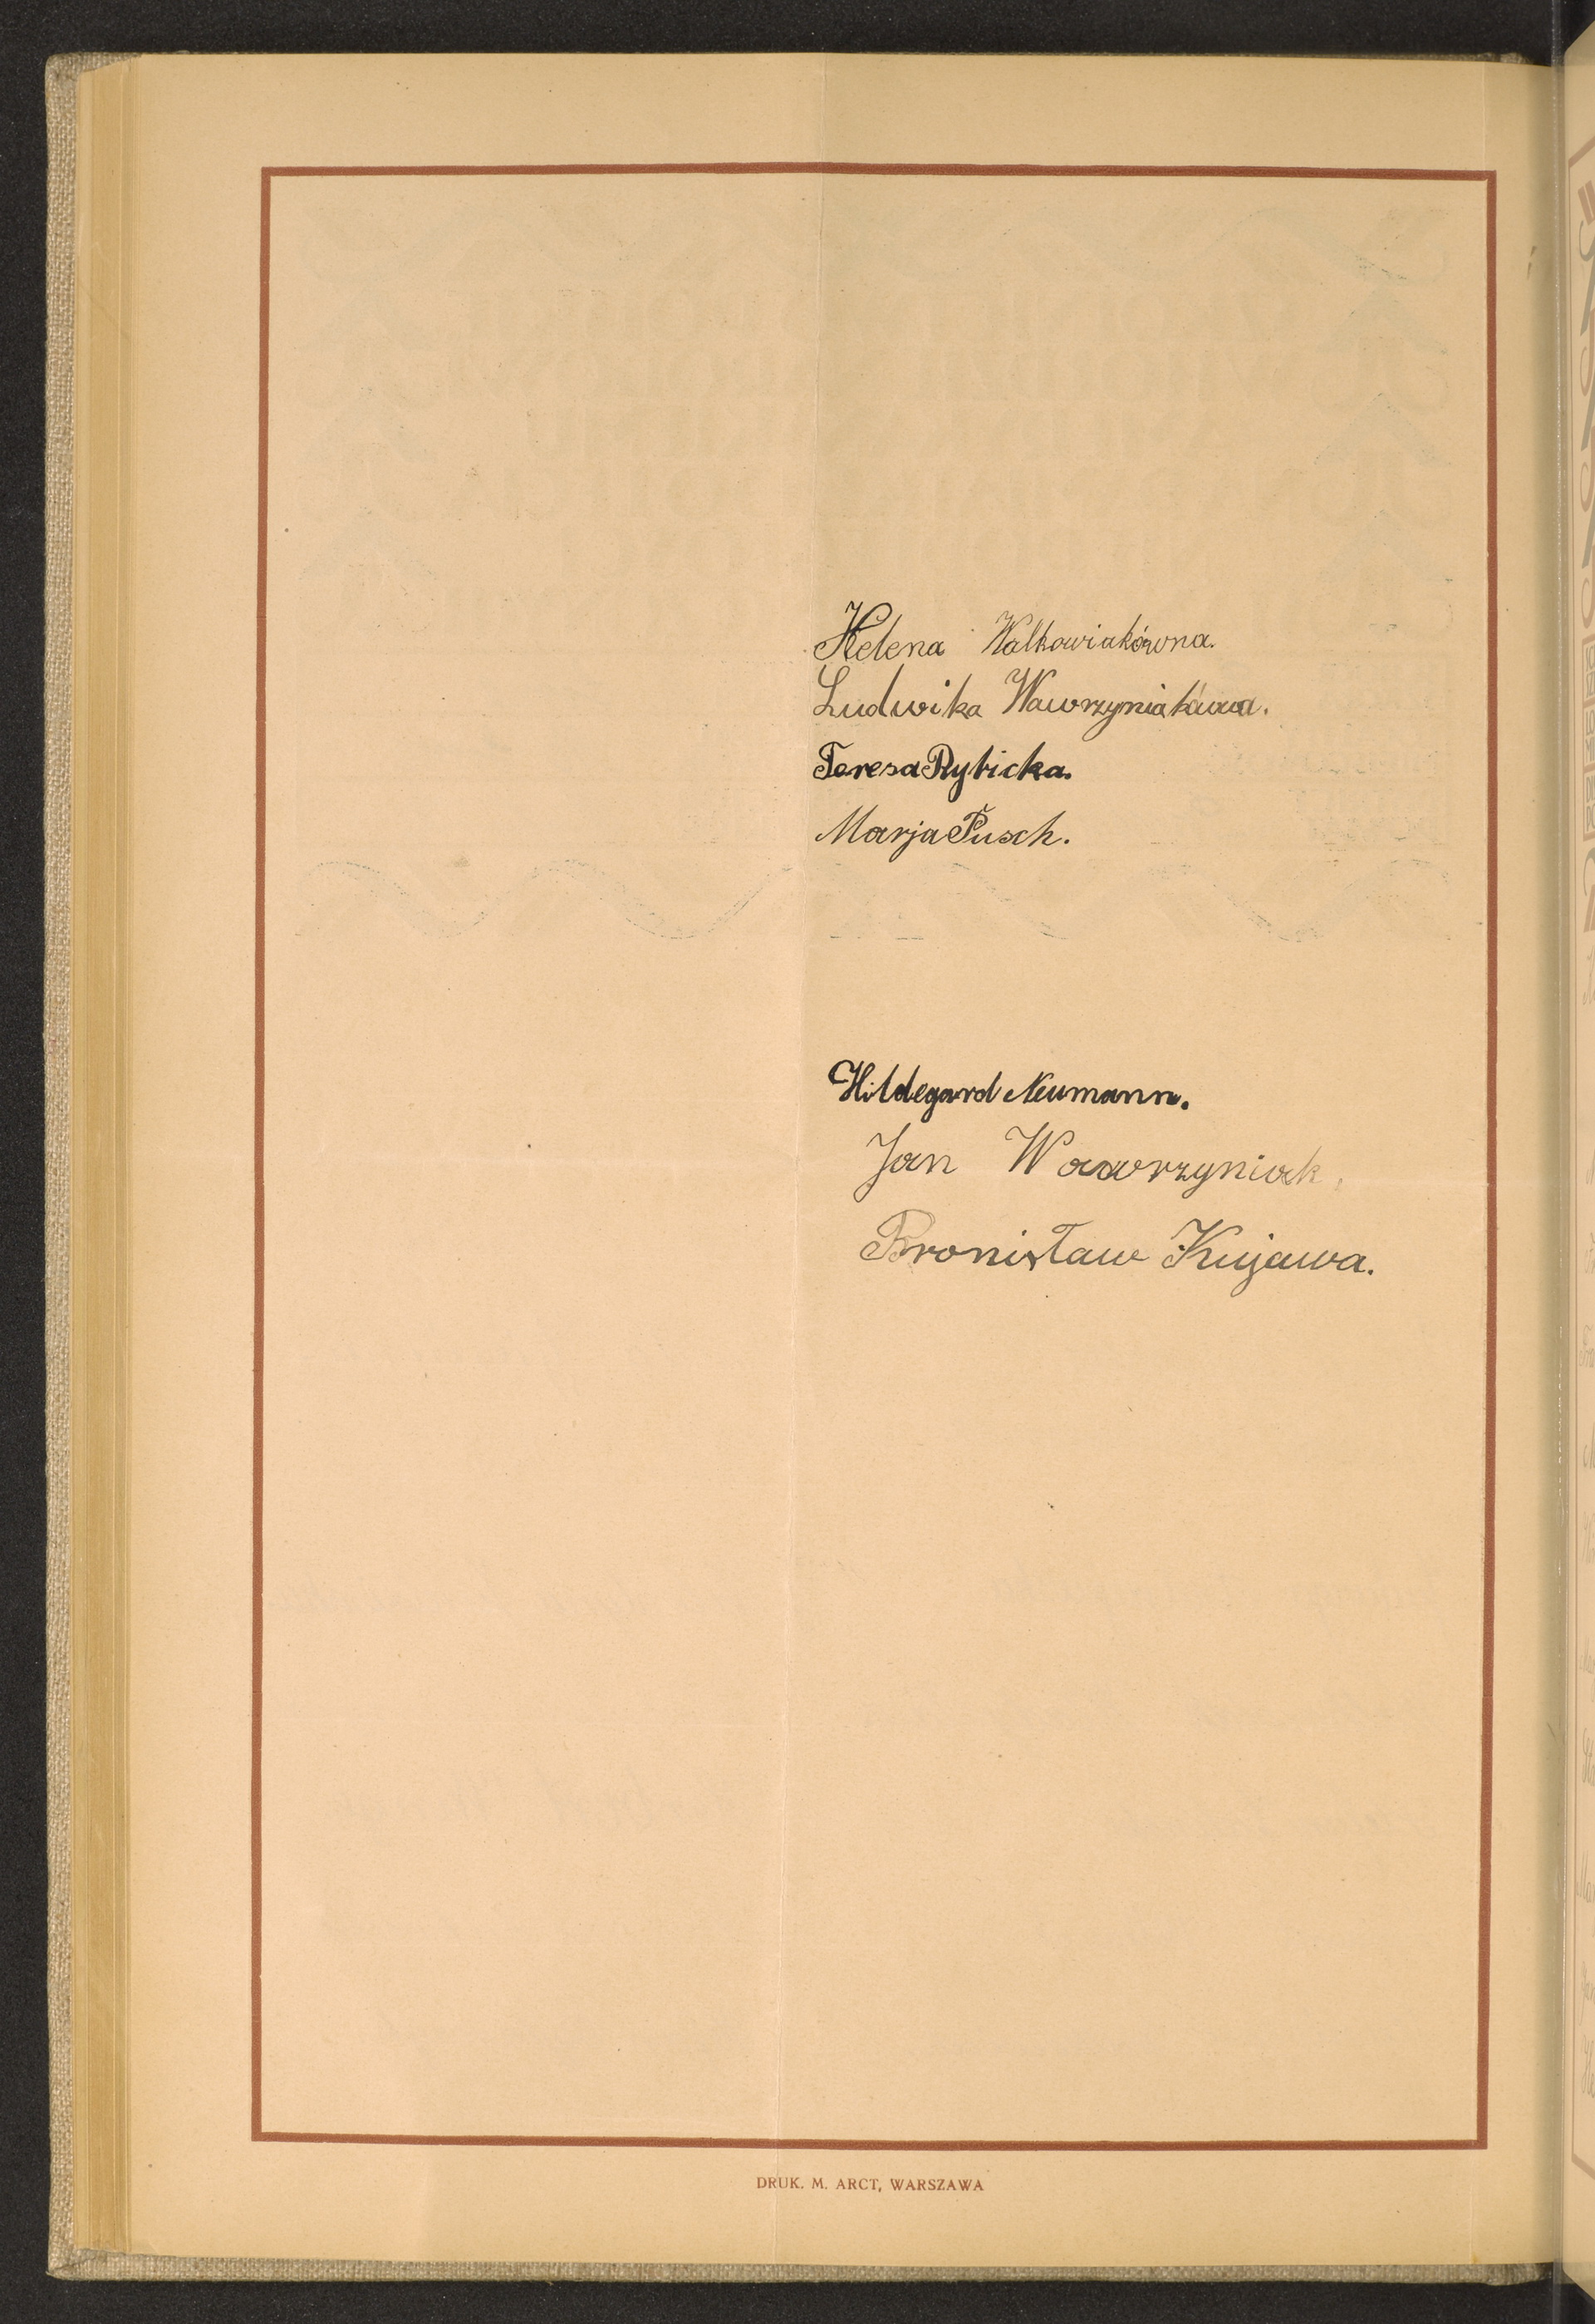 Helena Walkowiakówna.
Ludwika Wawrzyniakówna.
Teresa Rybicka.
Marja Pusch.
Hildegard Neumann.
Jan Wawrzyniak.
Bronisław Kujawa.
DRUK. M. ARCT, WARSZAWA